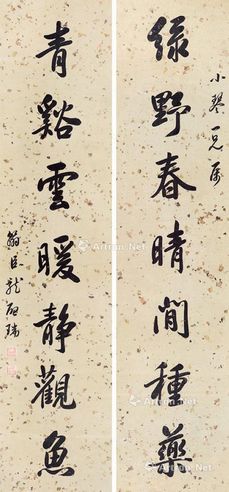 小琴一兄屬
綠野春晴閒種藥
青谿雲暖靜觀魚
翰臣龍啟瑞
Artron.Net
Artron.Net